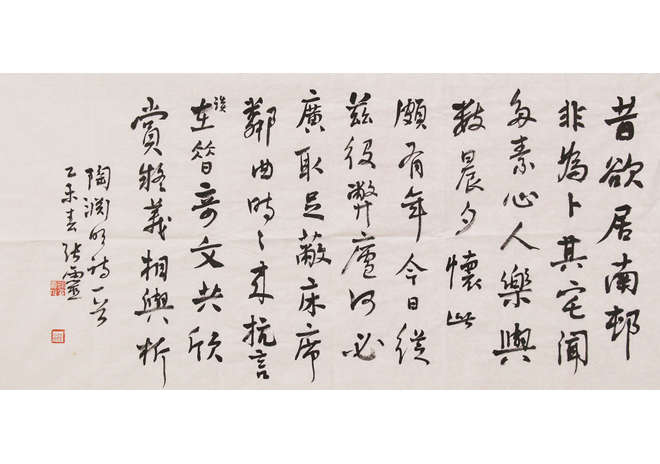 昔欲居南邨
非為卜其宅聞
多素心人樂與
數晨夕懷此
頗有年今日從
茲役弊廬何必
廣取足蔽床席
鄰曲時〻來抗言
談在昔奇文共欣
賞疑義相與析
陶淵明詩一首
乙未春張